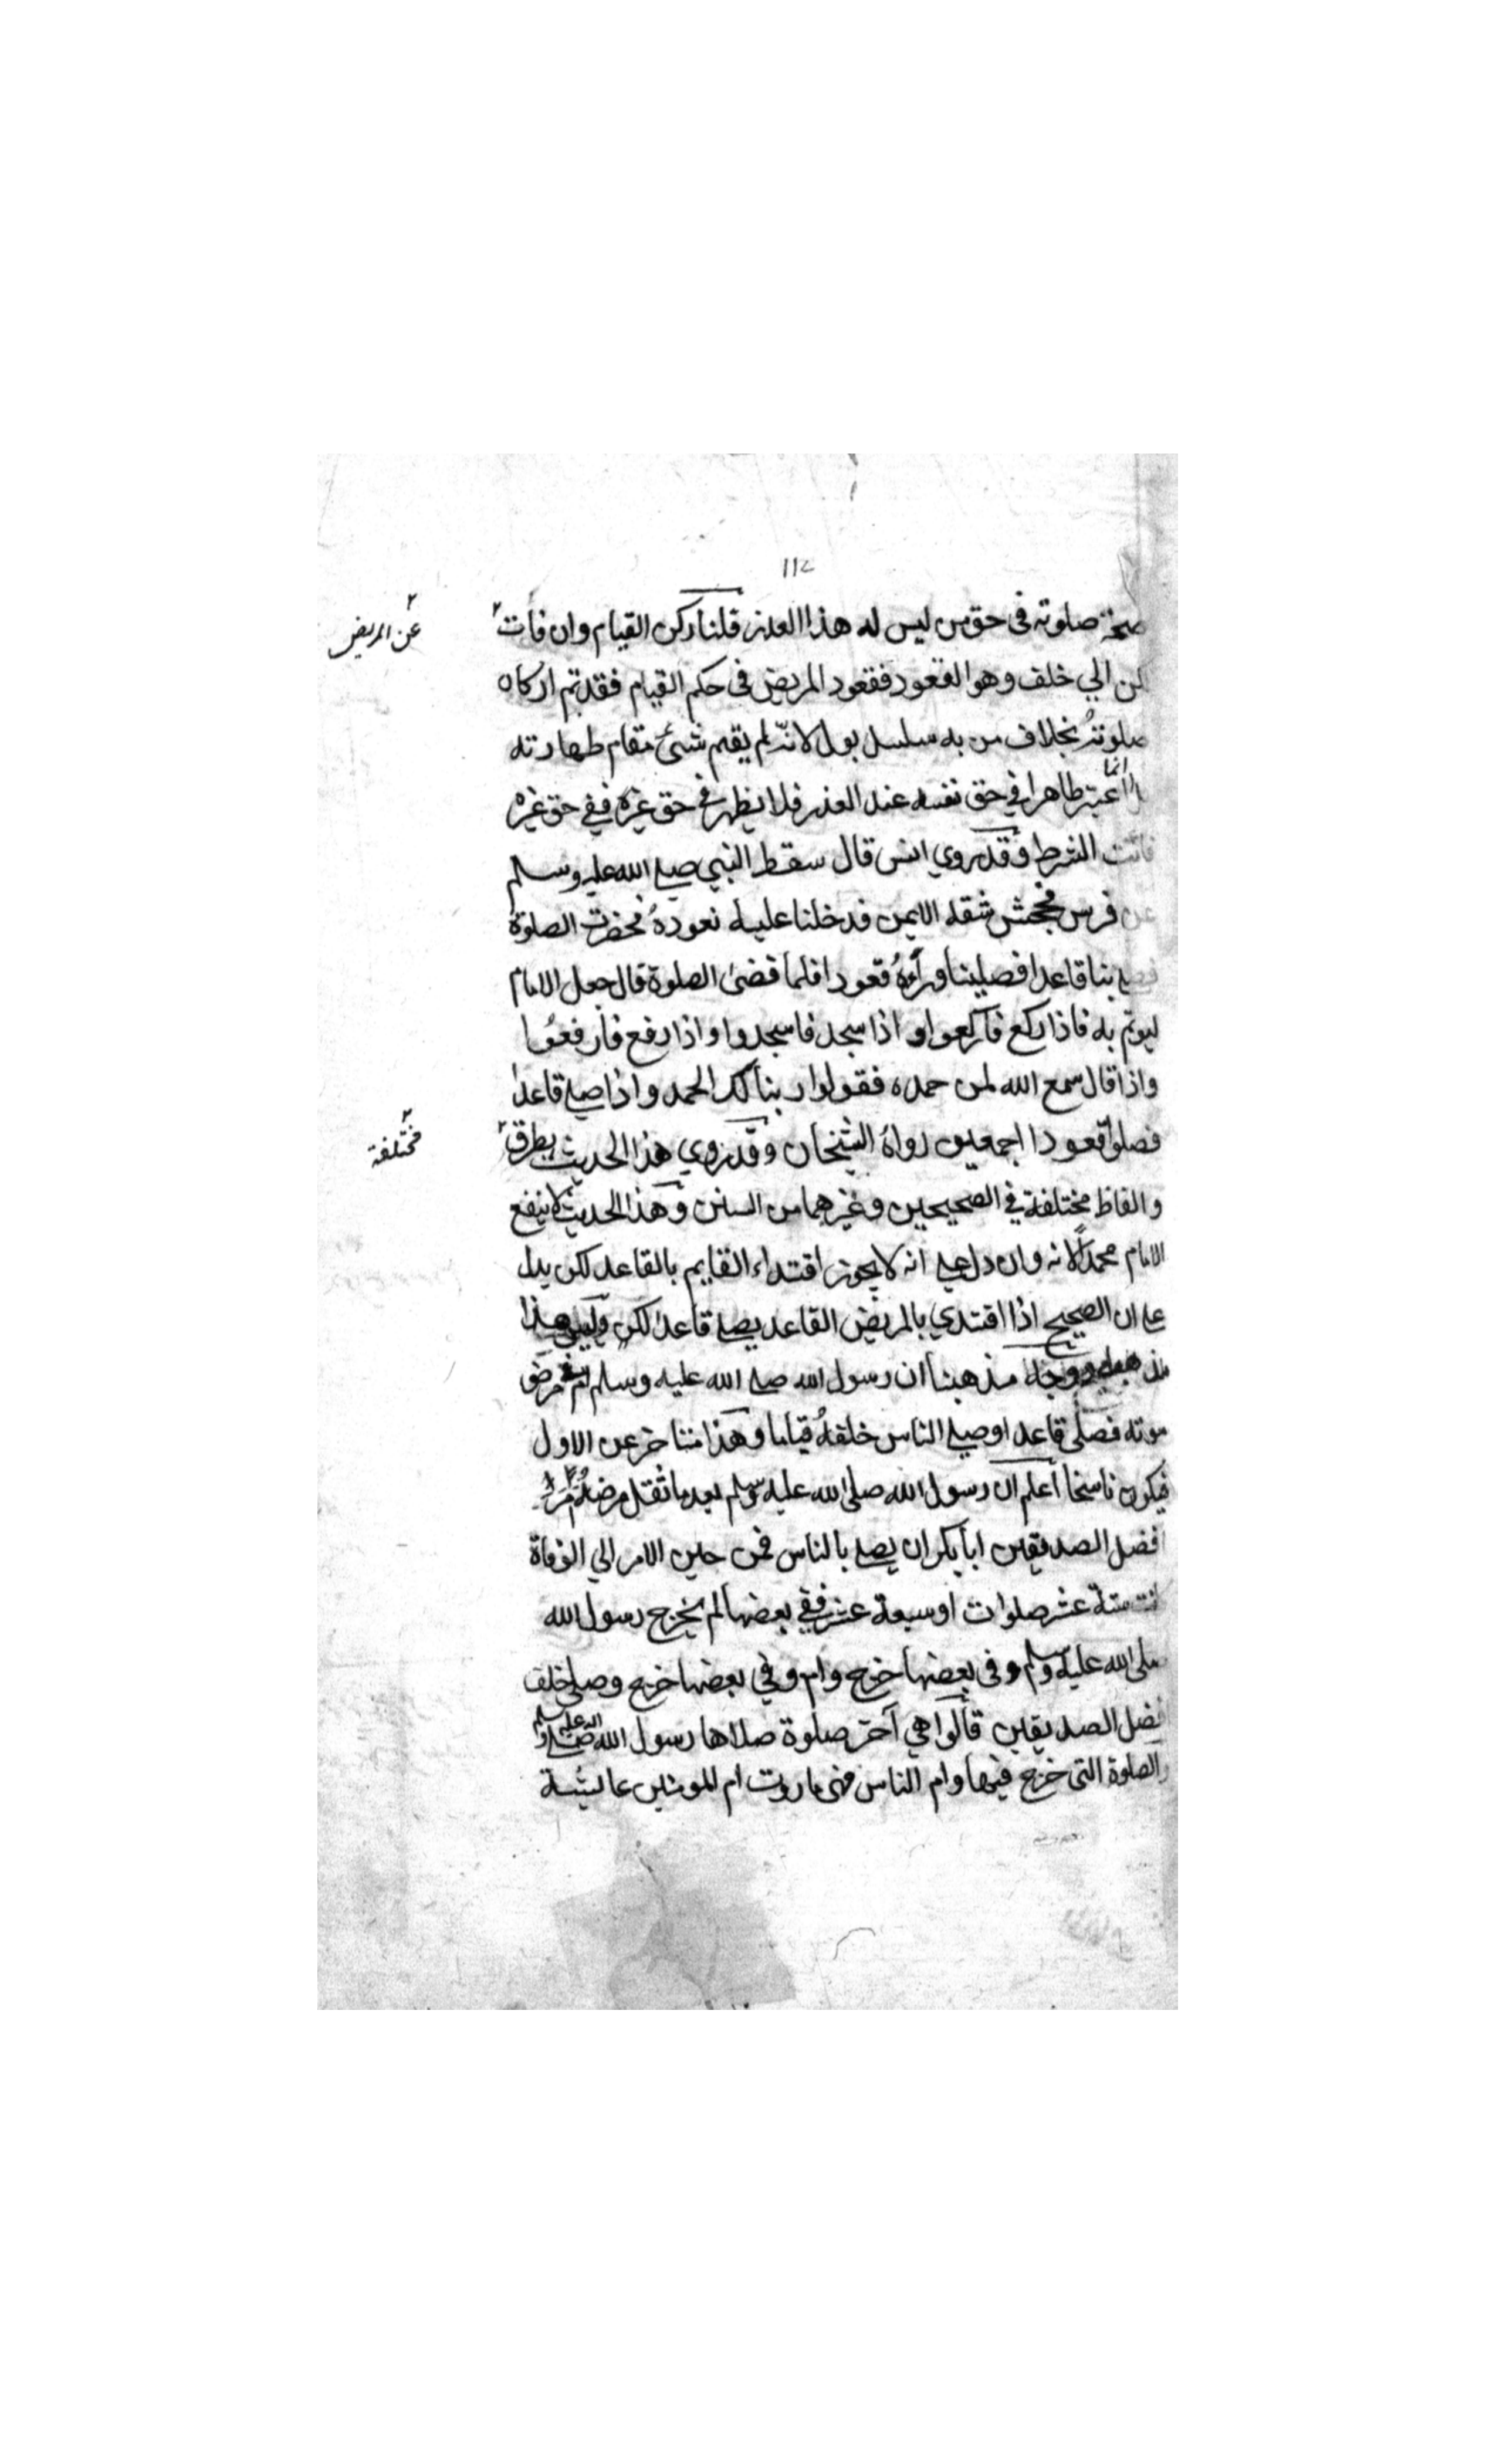 112
صحة صلوته في حق من ليس له هذا العذر قلنا ركن القيام وان فات
عن المريض
لكن الي خلف وهو القعود فقعود المريض في حكم القيام فقد تم اركان
صلوته بخلاف من به سلسل بول لانه لم يقم شئ مقام طهارته
انما
اعتبر طاهرا في حق نفسه عند العذر فلا يظهر في حق غيره ففي حق غيره
فاتت الشرط وقد روي انس قال سقط النبي صلي الله عليه وسلم
عن فرس فجحش شقه الايمن فدخلنا عليه نعوده فحضرت الصلوة
فصلي بنا قاعدا فصلينا وراءه قعودا فلما قضى الصلوة قال جعل الامام
ليوتم به فاذا ركع فاركعوا و اذا سجد فاسجدوا واذا رفع فارفعوا
واذا قال سمع الله لمن حمده فقولوا ربنا لك الحمد واذا صلي قاعدا
فصلوا قعودا اجمعين رواه الشيخان وقد روي هذا الحديث بطرق
مختلفة
والفاظ مختلفة في الصحيحين وغيرهما من السنن وهذا الحديث لا ينفع
الامام محمدا لانه وان دل علي انه لا يجوز اقتداء القايم بالقاعد لكن يدل
علي ان الصحيح اذا اقتدي بالمريض القاعد يصلي قاعدا لكن وليس هذا
مذهبه ووجه مذهبنا ان رسول الله صلي الله عليه وسلم مرض
موته فصلى قاعدا وصلي الناس خلفه قياما وهذا متاخر عن الاول
فيكون ناسخا اعلم ان رسول الله صلى الله عليه وسلم بعد ما ثقل مرضه امر
افضل الصديقين ابا بكر ان يصلي بالناس فمن حين الامر الي الوفاة
كانت ستة عشر صلوات او سبعة عشر ففي بعضها لم يخرج رسول الله
صلى الله عليه وسلم وفي بعضها خرج وام وفي بعضها خرج وصلى خلف
افضل الصديقين قالوا هي آخر صلوة صلاها رسول الله صلى الله عليه وسلم
والصلوة التي خرج فيها وام الناس فهي ما روت ام المومنين عايشة